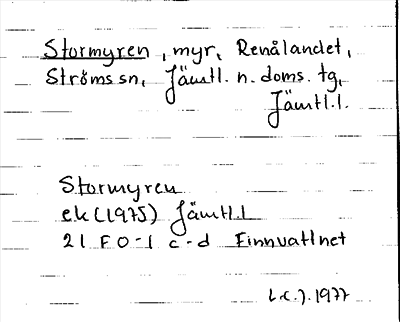 Stormyren, myr, Renålandet,
Ströms sn, Jämtl. n. doms. tg,
Jämtl. l.
Stormyren
ek (1975) Jämtl. l
21 F 0-1 c-d Finnvattnet
1977